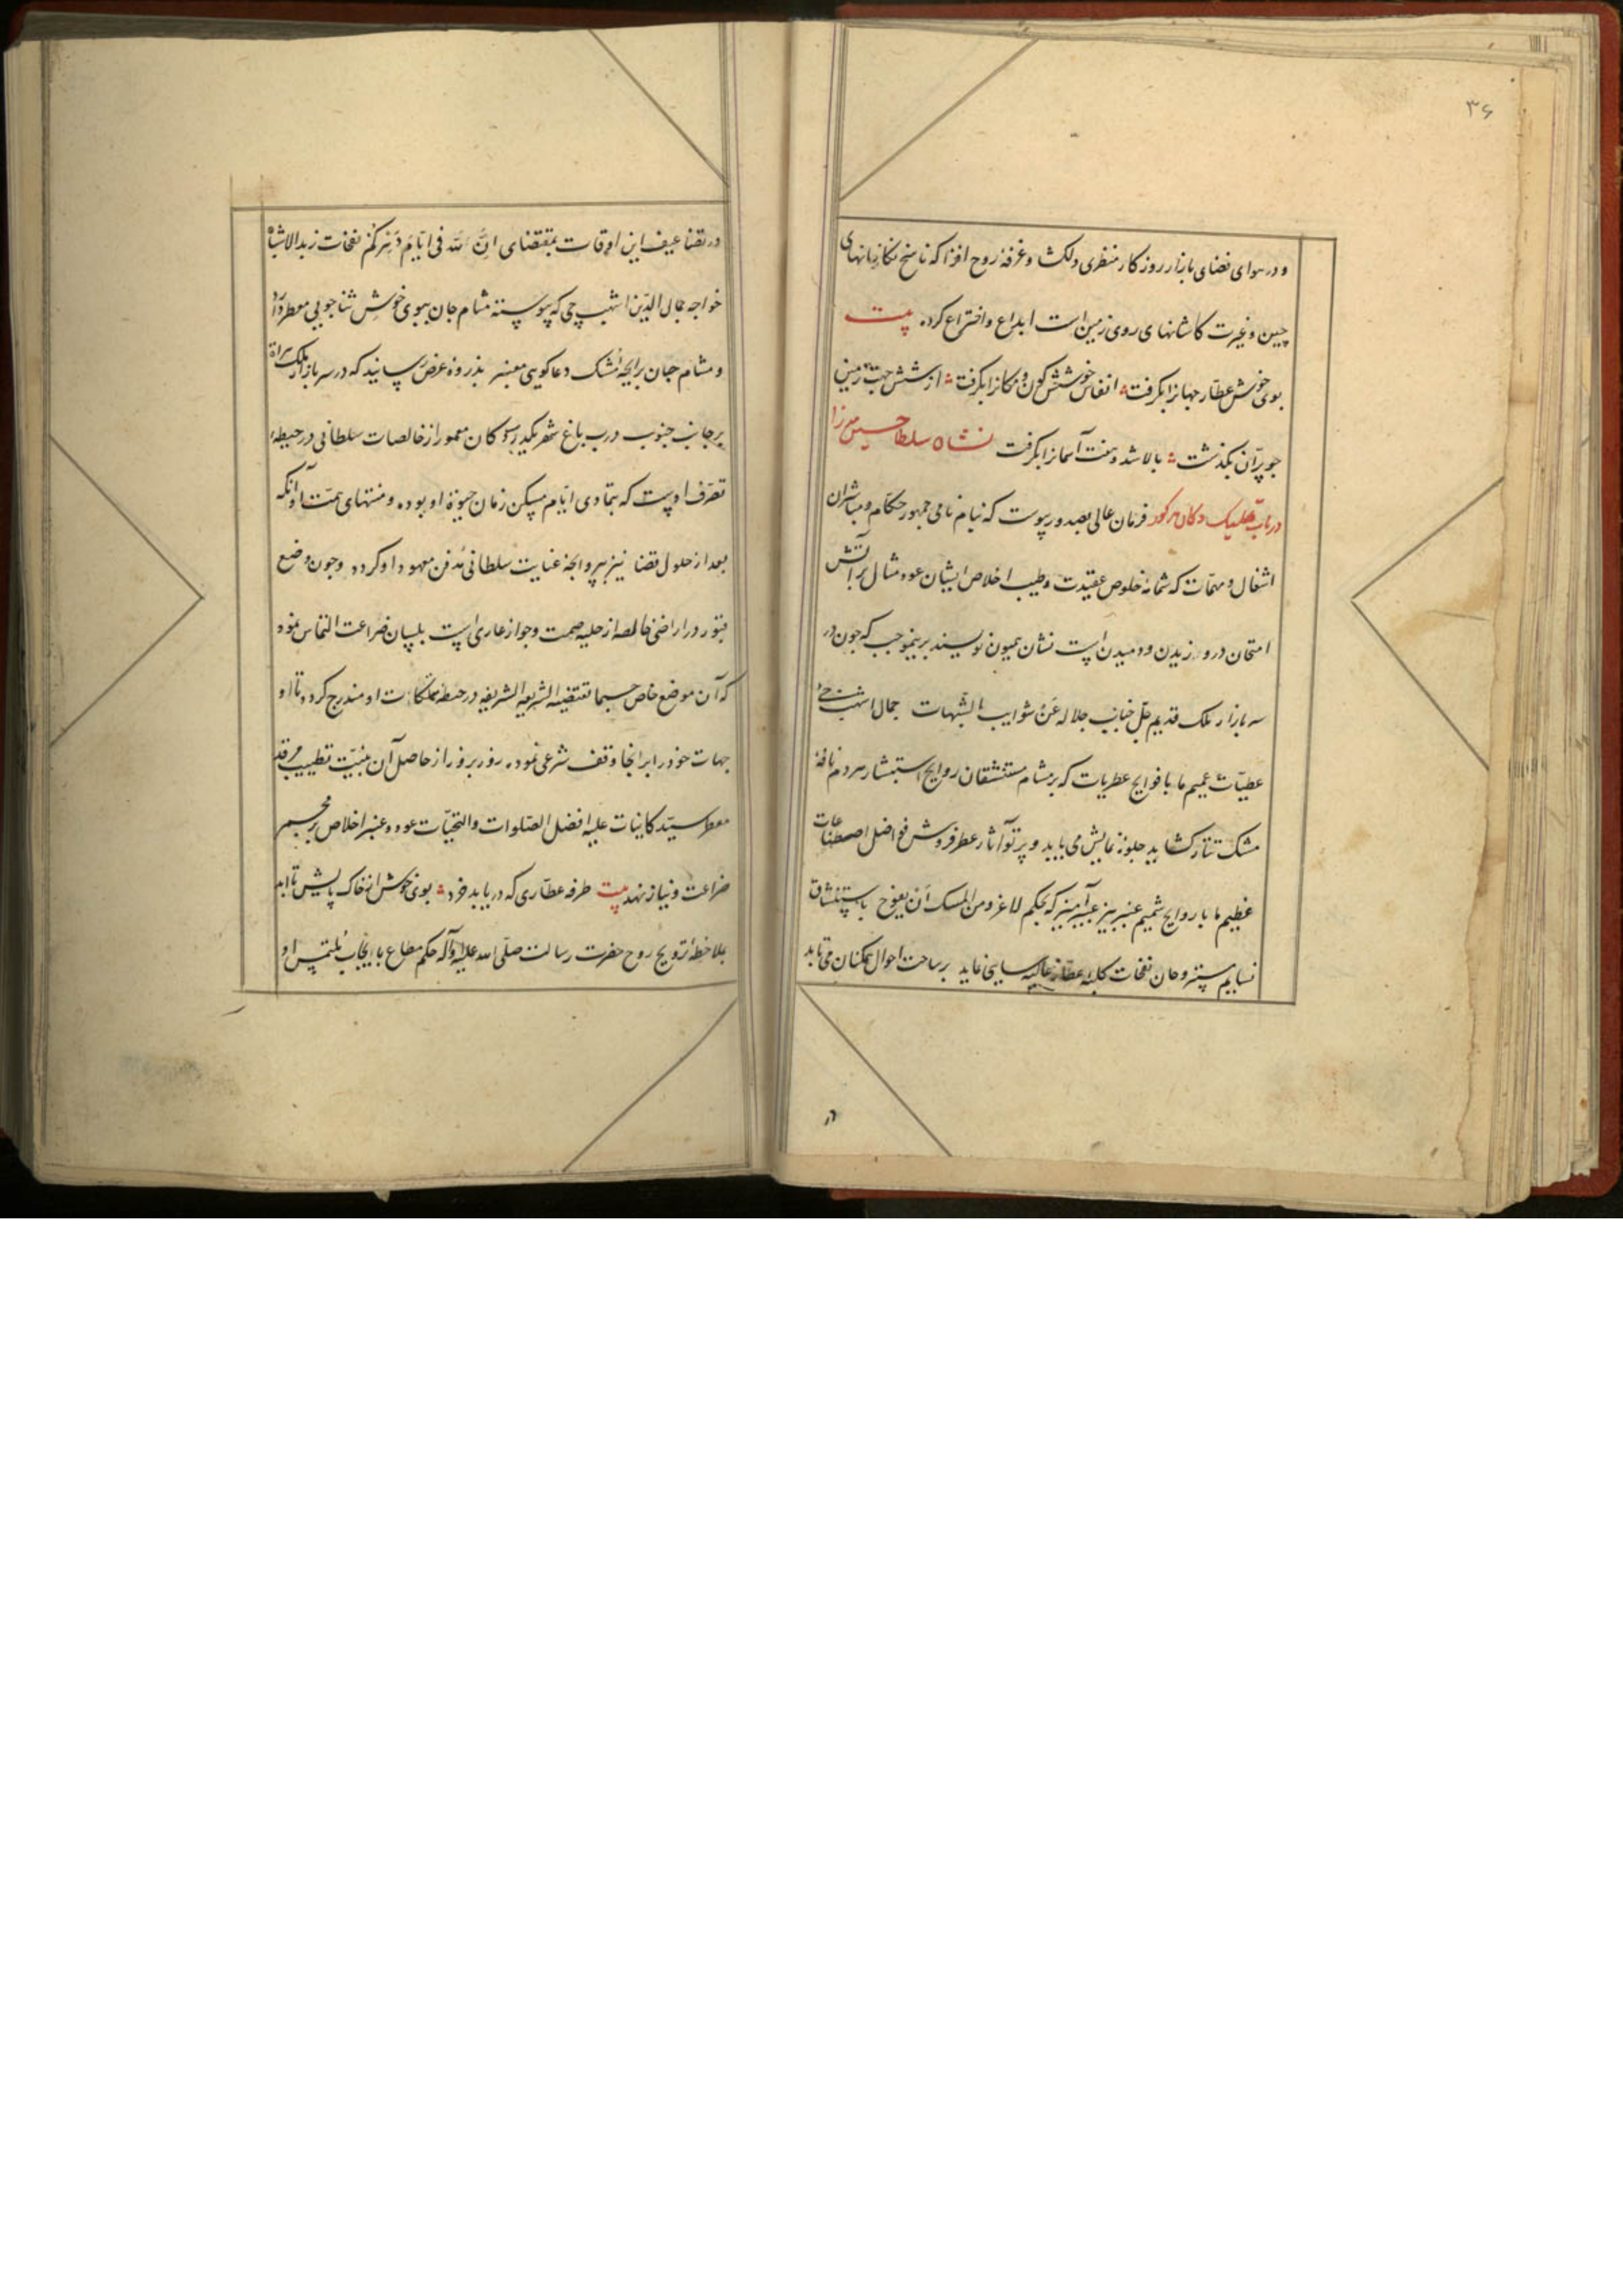 ۳۶
و در هوای فضای بازار روزکار منظری دلکش و غرفهٔ روح افزا که ناسخ نکارخانهای
چین و غیرت کاشانهای روی زمین است ابداع و اختراع کرده بیت
بوی خوش عطار جهانرا بکرفت انفاس خوشش کون و مکانرا بکرفت از شش جهت زمین
چو پرّان بکذشت بالا شد و هفت آسمانرا بکرفت نشان سلطان حسین میرزا
در باب تملیک دکان مذکور فرمان عالی بصدور پیوست که بنام نامی جمهور حکام و مباشران
اشغال و مهمّات که شمامهٔ خلوص عقیدت و طیب اخلاص ایشان عود مثال بر آتش
امتحان در وزیدن و دمیدن است نشان همیون نویسند برینموجب که چون در
سر بازار ملک قدیم جلّ جناب جلاله عن شوایب الشبهات جمال اشهب چی
عطیّات عمیم ما با فوایح عطریات که بر مشام مستنشقان روایح استبشار مردم نافهٔ
مشک تتار کشاید جلوهٔ نمایش می یابد و پرتو آثار عطرفروش فواضل اصطناعات
عظیم ما با روایح شمیم عنبربیز عبیرآمیز که بحکم لاغرو من المسک ان یفوح باستنشاق
نسایم مستروحان نفحات کلبهٔ عطار غالیه سایی نماید بر ساحت احوال همکنان می تابد
در تضاعیف این اوقات بمقتضای انّ لله فی ایّام دهرکم نفحات زبدة الاشباه
خواجه جمال الدّین اشهب چی که پیوسته مشام جان ببوی خوش ثناجویی معطر دارد
و مشام جان برایحهٔ مشک دعاکویی معنبر بذروهٔ عرض رسانید که در سر بازار ملک هراة
بر جانب جنوب درب باغ شهر یکدر دکان معمور از خالصات سلطانی در حیطهٔ
تصرّف اوست که بتمادی ایّام مسکن زمان حیوة او بوده و منتهای همّت او آنکه
بعد از حلول قضا نیز بپروانجهٔ عنایت سلطانی مدفن معهود او کردد و چون وضع
قبور در اراضی خالصه از حلیه صحت و جواز عاری است بلسان ضراعت التماس نمود
که آن موضع خاص حسبما تقتضیه الشریعة الشریفه در حیطهٔ تملکات او مندرج کردد تا او
جهات خود را برانجا وقف شرعی نموده روز بروز از حاصل آن بنیّت تطییب مرقد
معطر سیّد کاینات علیه افضل الصّلوات والتحیّات عود و عنبر اخلاص بر مجمر
ضراعت و نیاز نهد بیت طرفه عطاری که دریابد خرد بوی خوش از خاک پایش تا ابد
بملاحظهٔ ترویح روح حضرت رسالت صلّی الله علیه وآله حکم مطاع با ایجاب ملتمس او